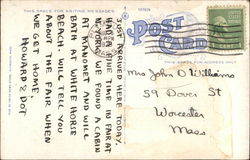 THIS SPACE FOR WRITING MESSAGES
POST CARD
THIS SPACE FOR ADDRESS ONLY
JUST ARRIVED HERE TODAY.
HAD A FINE TIME IN FAIR AT
N. YORK. WE FOUND A CABIN
AT MANOMET AND WILL
BATH AT WHITE HORSE
BEACH. WILL TELL YOU
ABOUT THE FAIR WHEN
WE GET HOME.
HOWARD & DOT
Mrs John D Williams
59 Dover St
Worcester
Mass